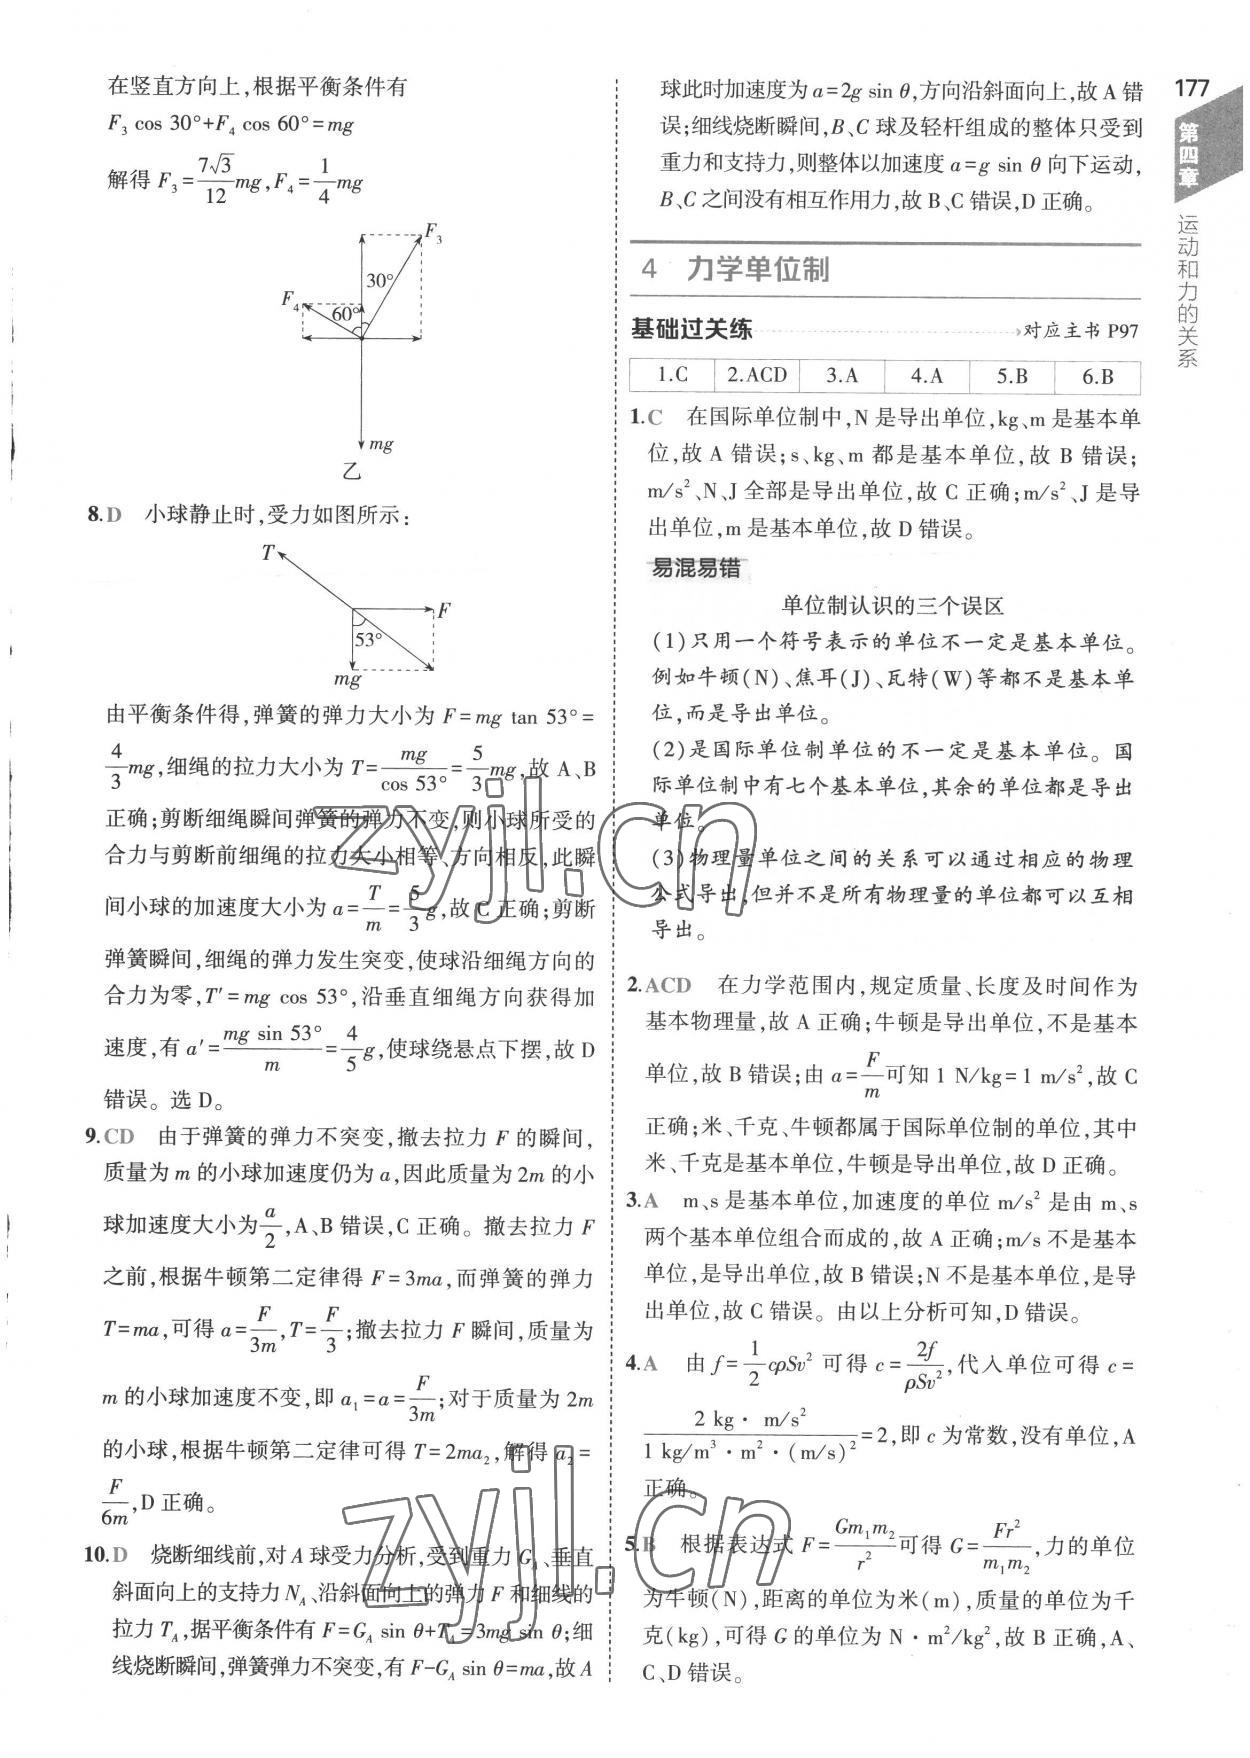 在竖直方向上,根据平衡条件有
F₃ cos 30°+F₄ cos 60°=mg
解得 F₃=7√3/12 mg,F₄=1/4 mg
F₃
30°
F₄
60°
mg
乙
8.D 小球静止时,受力如图所示:
T
F
53°
mg
由平衡条件得,弹簧的弹力大小为 F=mg tan 53°=
4/3 mg,细绳的拉力大小为 T=mg/cos 53°=5/3 mg,故 A、B
正确;剪断细绳瞬间弹簧的弹力不变,则小球所受的
合力与剪断前细绳的拉力大小相等、方向相反,此瞬
间小球的加速度大小为 a=T/m=5/3 g,故 C 正确;剪断
弹簧瞬间,细绳的弹力发生突变,使球沿细绳方向的
合力为零,T′=mg cos 53°,沿垂直细绳方向获得加
速度,有 a′=mg sin 53°/m=4/5 g,使球绕悬点下摆,故 D
错误。选 D。
9.CD 由于弹簧的弹力不突变,撤去拉力 F 的瞬间,
质量为 m 的小球加速度仍为 a,因此质量为 2m 的小
球加速度大小为 a/2,A、B 错误,C 正确。撤去拉力 F
之前,根据牛顿第二定律得 F=3ma,而弹簧的弹力
T=ma,可得 a=F/3m,T=F/3;撤去拉力 F 瞬间,质量为
m 的小球加速度不变,即 a₁=a=F/3m;对于质量为 2m
的小球,根据牛顿第二定律可得 T=2ma₂,解得 a₂=
F/6m,D 正确。
10.D 烧断细线前,对 A 球受力分析,受到重力 G_A、垂直
斜面向上的支持力 N_A、沿斜面向上的弹力 F 和细线的
拉力 T_A,据平衡条件有 F=G_A sin θ+T_A=3mg sin θ;细
线烧断瞬间,弹簧弹力不突变,有 F-G_A sin θ=ma,故 A
球此时加速度为 a=2g sin θ,方向沿斜面向上,故 A 错
误;细线烧断瞬间,B、C 球及轻杆组成的整体只受到
重力和支持力,则整体以加速度 a=g sin θ 向下运动,
B、C 之间没有相互作用力,故 B、C 错误,D 正确。
4 力学单位制
基础过关练 对应主书 P97
1.C 2.ACD 3.A 4.A 5.B 6.B
1.C 在国际单位制中,N 是导出单位,kg、m 是基本单
位,故 A 错误;s、kg、m 都是基本单位,故 B 错误;
m/s²、N、J 全部是导出单位,故 C 正确;m/s²、J 是导
出单位,m 是基本单位,故 D 错误。
易混易错
单位制认识的三个误区
(1)只用一个符号表示的单位不一定是基本单位。
例如牛顿(N)、焦耳(J)、瓦特(W)等都不是基本单
位,而是导出单位。
(2)是国际单位制单位的不一定是基本单位。国
际单位制中有七个基本单位,其余的单位都是导出
单位。
(3)物理量单位之间的关系可以通过相应的物理
公式导出,但并不是所有物理量的单位都可以互相
导出。
2.ACD 在力学范围内,规定质量、长度及时间作为
基本物理量,故 A 正确;牛顿是导出单位,不是基本
单位,故 B 错误;由 a=F/m 可知 1 N/kg=1 m/s²,故 C
正确;米、千克、牛顿都属于国际单位制的单位,其中
米、千克是基本单位,牛顿是导出单位,故 D 正确。
3.A m、s 是基本单位,加速度的单位 m/s² 是由 m、s
两个基本单位组合而成的,故 A 正确;m/s 不是基本
单位,是导出单位,故 B 错误;N 不是基本单位,是导
出单位,故 C 错误。由以上分析可知,D 错误。
4.A 由 f=1/2 cρSv² 可得 c=2f/ρSv²,代入单位可得 c=
2 kg·m/s²/1 kg/m³·m²·(m/s)²=2,即 c 为常数,没有单位,A
正确。
5.B 根据表达式 F=Gm₁m₂/r² 可得 G=Fr²/m₁m₂,力的单位
为牛顿(N),距离的单位为米(m),质量的单位为千
克(kg),可得 G 的单位为 N·m²/kg²,故 B 正确,A、
C、D 错误。
177
第四章
运动和力的关系
zyjl.cn
zyjl.cn